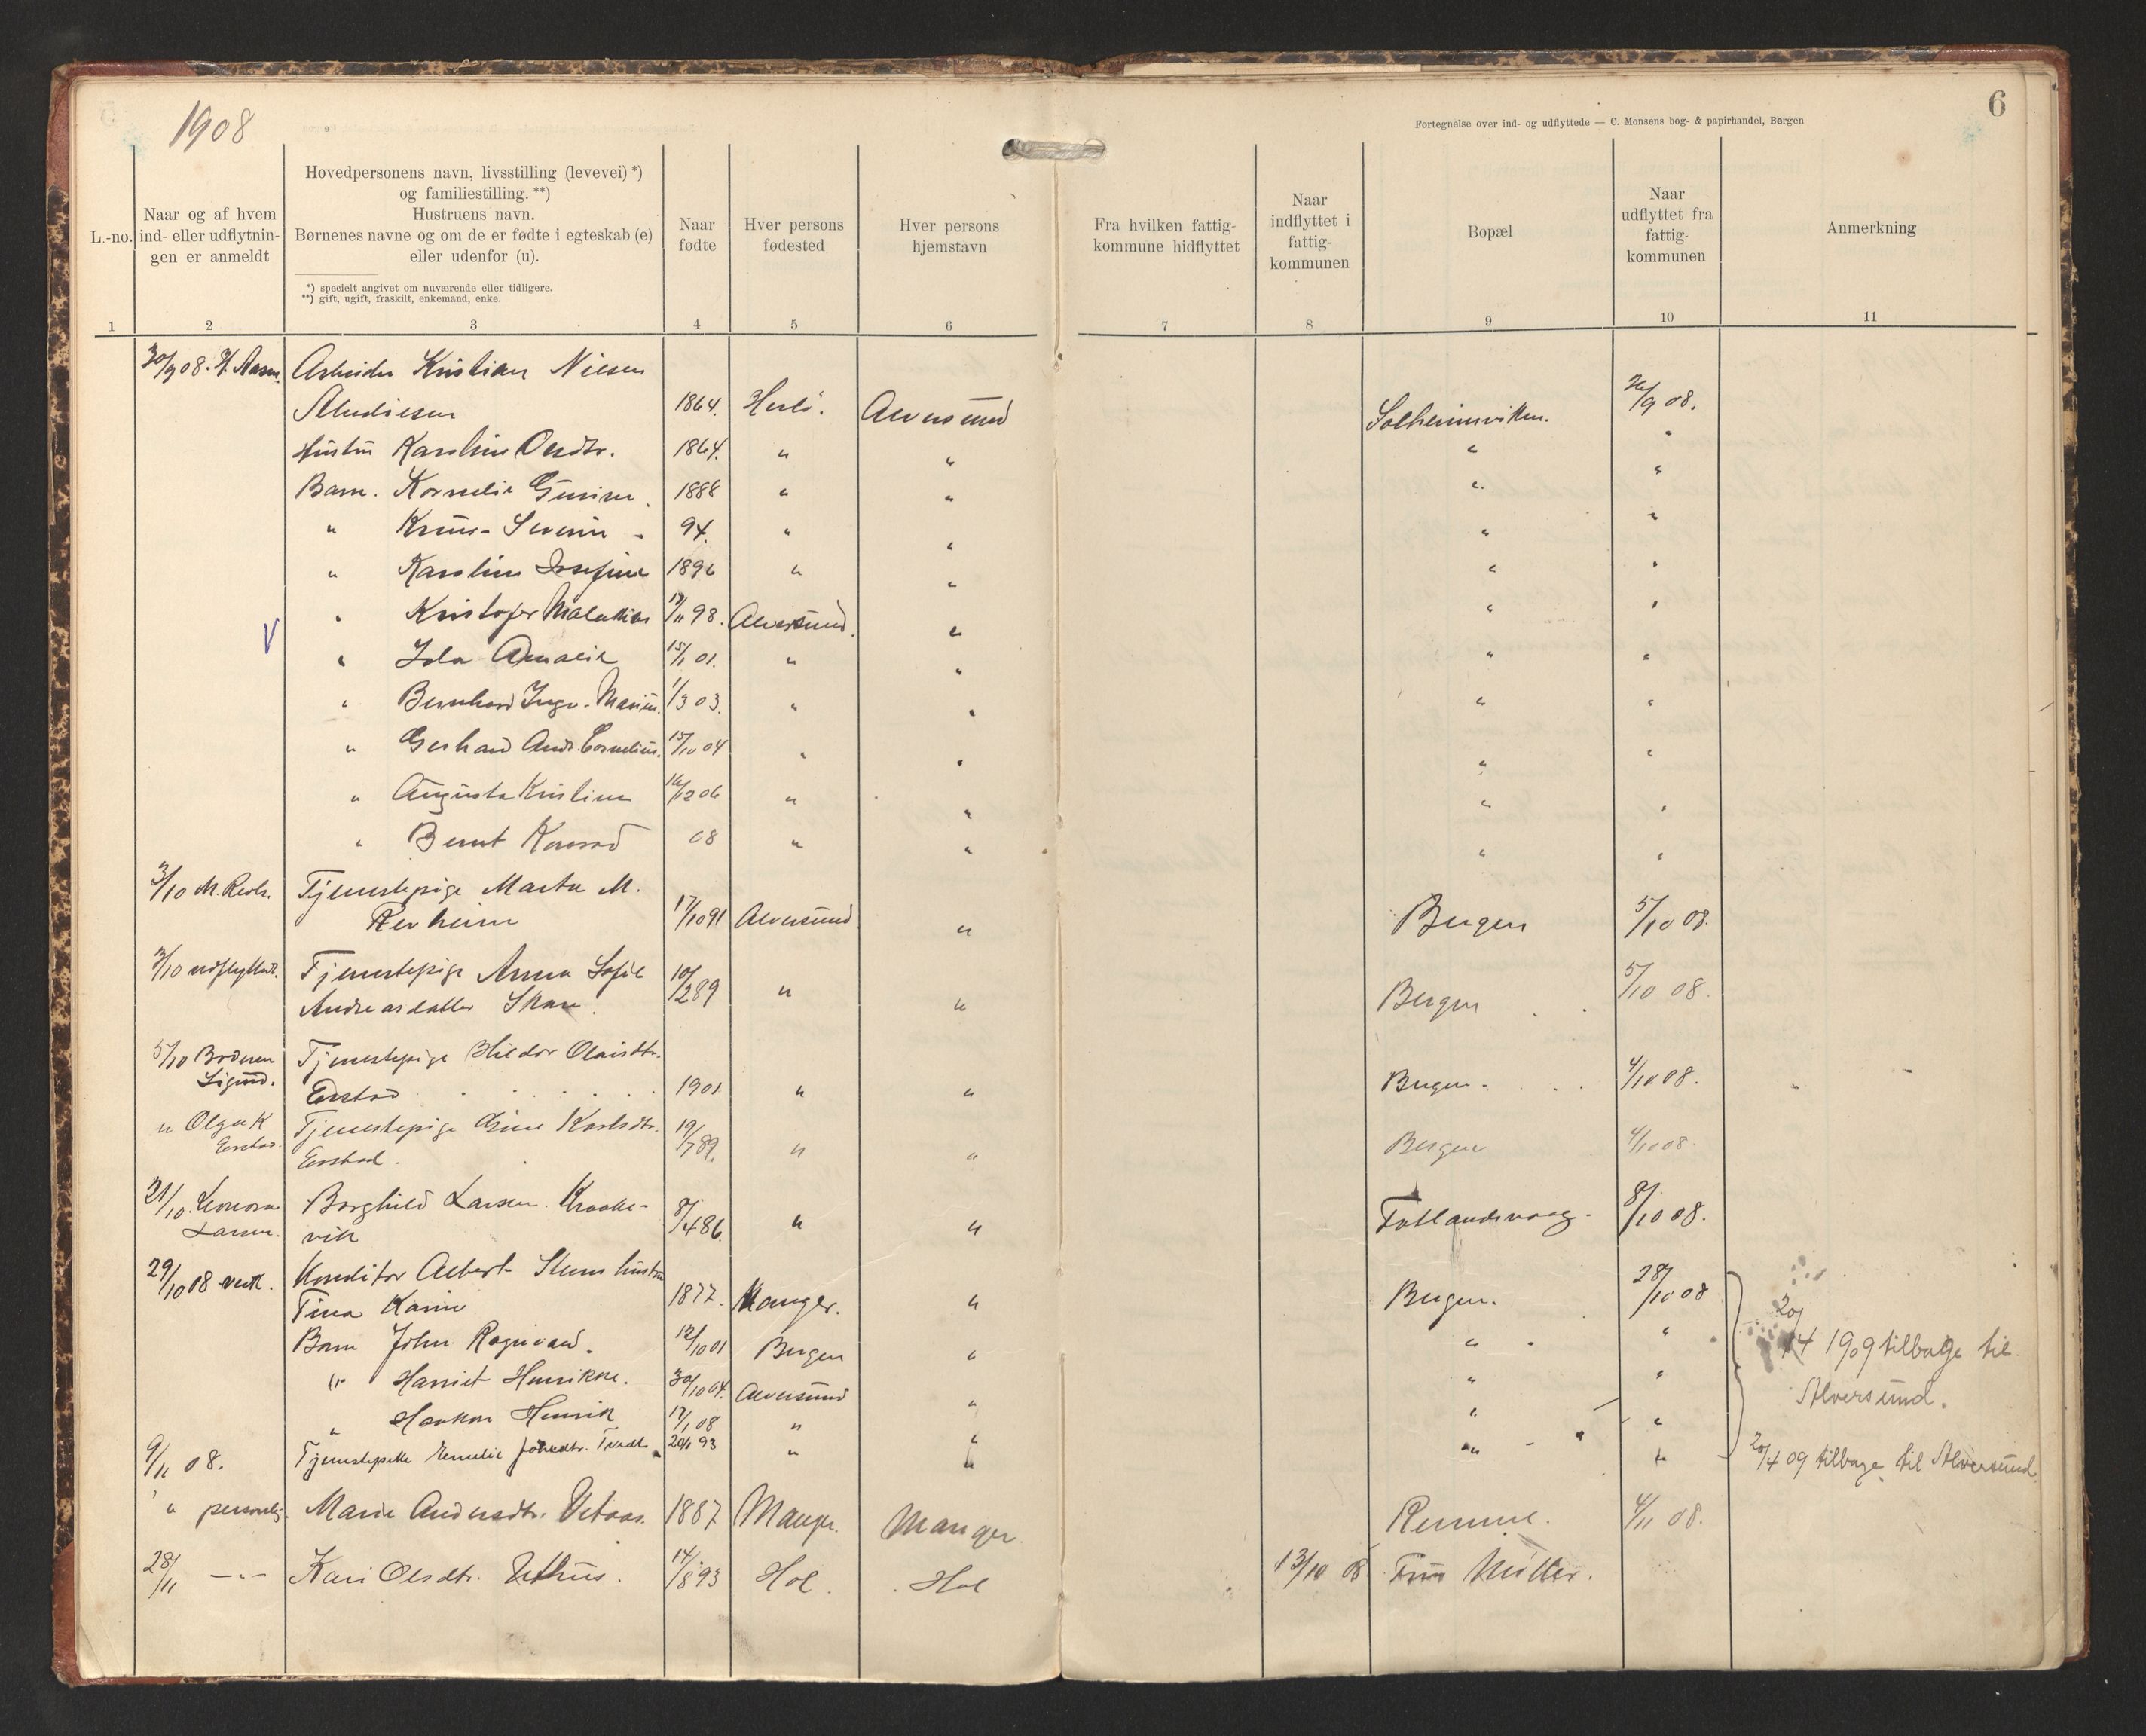 1908
6
Fortegnelse over ind- og udflyttede — C. Monsens bog- & papirhandel, Bergen
L.-no.
Naar og af hvem ind- eller udflytnin- gen er anmeldt
Hovedpersonens navn, livsstilling (levevei) *) og familiestilling. **) Hustruens navn. Børnenes navne og om de er fødte i egteskab (e) eller udenfor (u).
*) specielt angivet om nuværende eller tidligere.
**) gift, ugift, fraskilt, enkemand, enke.
Naar fødte
Hver persons fødested
Hver persons hjemstavn
Fra hvilken fattig- kommune hidflyttet
Naar indflyttet i fattig- kommunen
Bopæl
Naar udflyttet fra fattig- kommunen
Anmerkning
1 2 3 4 5 6 7 8 9 10 11
30/9 08. Arbeider Kristian Nilsen
1864. Herlö. Alversund Solheimsviken. 26/9 08.
Hustru Karoline 1864. " " " "
Barn. Kornelia 1888 " " " "
" Severin 94. " " " "
" Karoline Josefine 1896 " " " "
" Kristofer Malakias 98. Alversund. " " "
V
" Ida Amalia 15/1 01. " " " "
" Bernhard Ingv. 1/3 03. " " " "
" Gerhard Andr. Cornelius. 15/10 04 " " " "
" Augusta Kristine 16/12 06 " " " "
" Bernt Konrad 08 " " " "
3/10 Tjenestepige Marta M.
Revheim 17/10 91 Alversund " Bergen 5/10 08.
3/10 udflytter. Tjenestepige Anna Sofie 10/2 89 " 5/10 08.
Andreasdatter Skare. " Bergen
5/10 Broderen Tjenestepige Olaisdtr.
Sigmd. 1901 " " Bergen. 4/10 08.
" Olga K Tjenestepige Karlsdtr. 19/7 89. " " Bergen 4/10 08.
21/10. Borghild Larsen. Kraake-
Larsen. vik 8/4 86. " " Fotlandsvaag. 8/10 08.
29/10 08 Konditor Albert hustru
Tina Karin 1877. Manger. " Bergen. 28/10 08
Barn John Ragnvald. 12/10 01 Bergen " " "
" Harriet Henrikke. 30/10 04. Alversund " " "
" Haakon Henrik 17/1 08 " " " "
20/4 1909 tilbage til
Alversund.
9/11 08. 93 " " " " 20/4 09 tilbage til Alversund.
" personlig. Marie Andersdtr. 1887 Manger. Manger 4/11 08.
28/11 —"— Kari Olsdtr. 14/8 93 Hol. Hol 13/10 08 Müller.